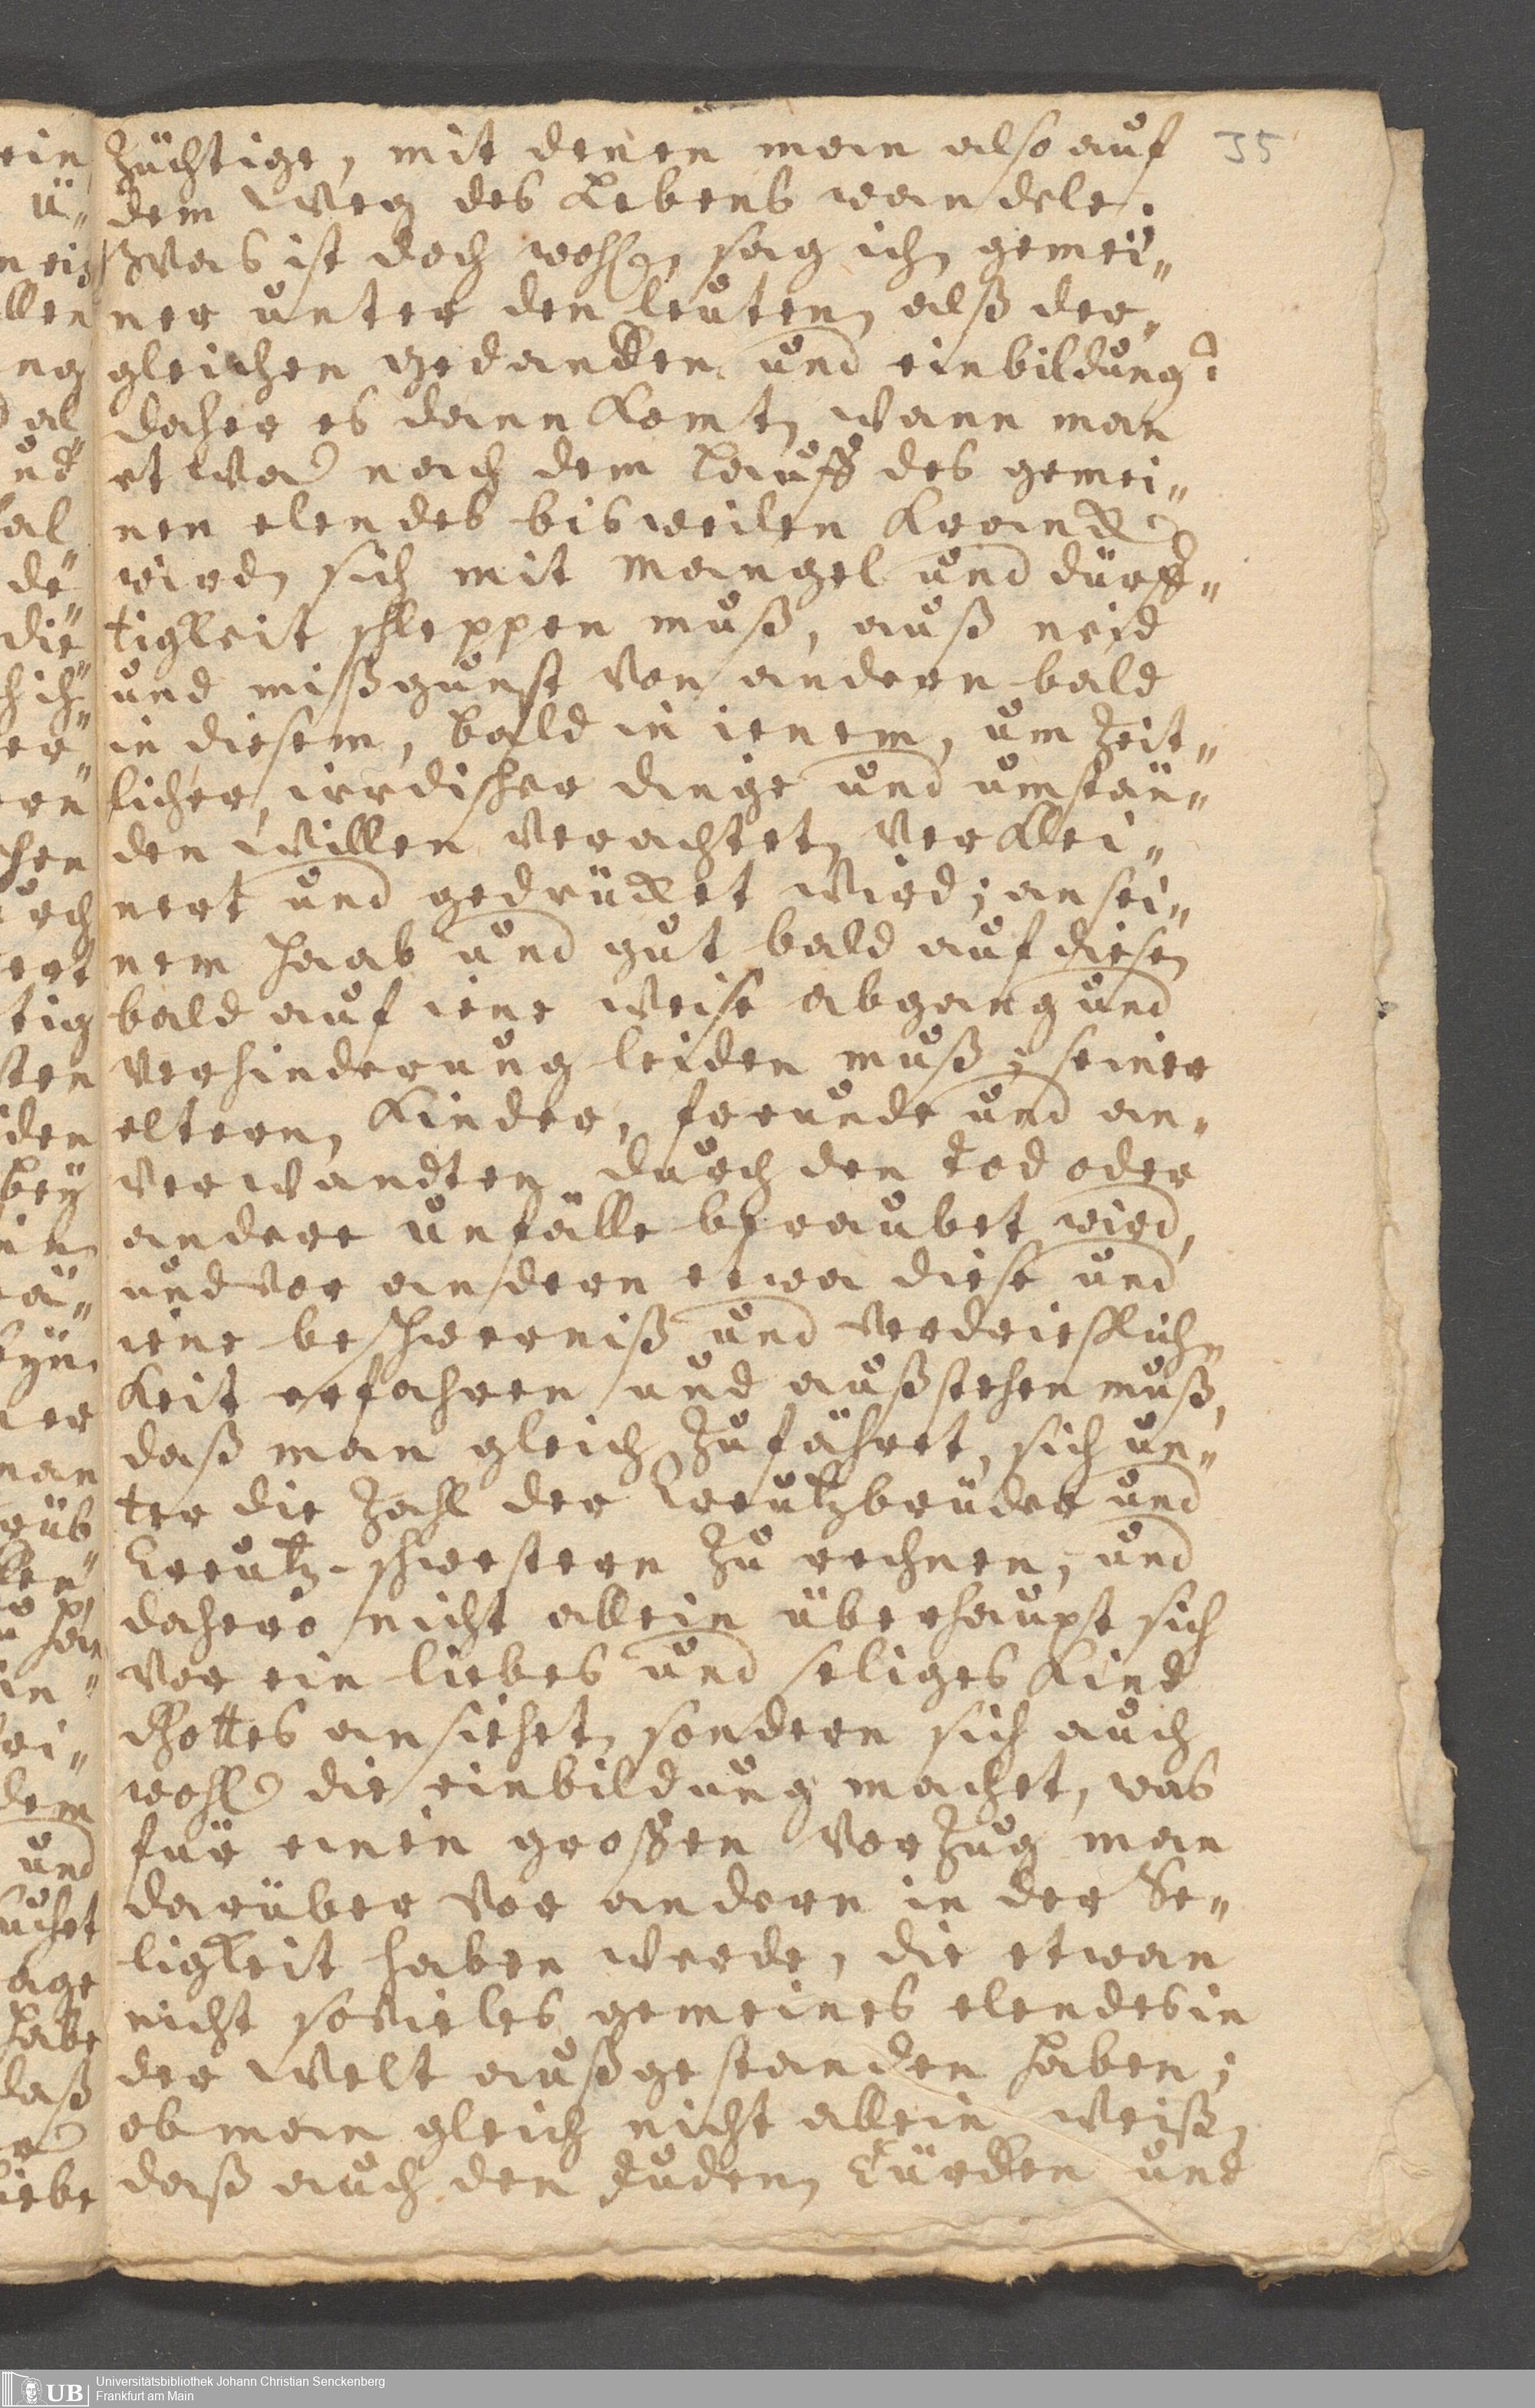 35
züchtige, mit denen man also auf
dem Weg des Lebens wandele.
Was ist doch wohl, sag ich, gemei„
ner unter den leuten, alß der„
gleichen gedancken und einbildung?
daher es dann komt, wann man
etwa nach dem Lauff des gemei„
nen elendes bisweilen kranck
wird, sich mit mangel und dürff„
tigkeit schleppen muß, auß neid
und mißgunst von andern bald
in diesem, bald in ienem, um zeit„
licher, irrdischer dinge und umstän„
den willen verachtet, verklei„
nert und gedrücket wird; an sei„
nem haab und gut bald auf diese,
bald auf iene weise abgang und
verhinderung leiden muß; seiner
eltern, kinder, freunde und an„
verwandten durch den tod oder
andere unfälle beraubet wird,
und vor andern etwa diese und
iene beschwerniß und verdrießlich„
keit erfahren und außstehen muß,
daß man gleich zufähret, sich un„
ter die zahl der Creutzbrüder und
Creutz-schwestern zu rechnen, und
dahero nicht allein überhaupt sich
vor ein liebes und seliges kind
Gottes ansiehet, sondern sich auch
wohl die einbildung machet, was
für einen großen vorzug man
darüber vor andern in der Se„
ligkeit haben werde, die etwan
nicht so vieles gemeines elendes in
der welt außgestanden haben;
ob man gleich nicht allein weiß,
daß auch den Juden, Türcken und
UB
Universitätsbibliothek Johann Christian Senckenberg
Frankfurt am Main